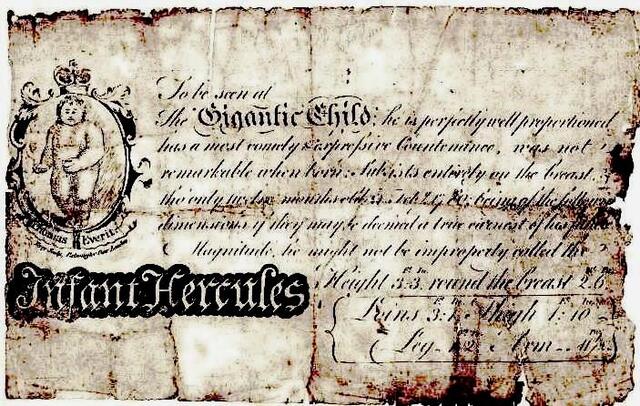 To be seen at
The Gigantic Child; he is perfectly well proportioned
has a most comely & expressive Countenance, was not
remarkable when born: Subsists entirely on the breast,
tho only twelve months old Feb. being of the
dimensions if they may be deemed a true earnest of
Magnitude, he might not be improperly called the
Infant Hercules
Height 3:3 round the breast 2:6
Loins 3:1 Thigh 1:10
Leg 1:2 Arm
Thomas Everitt